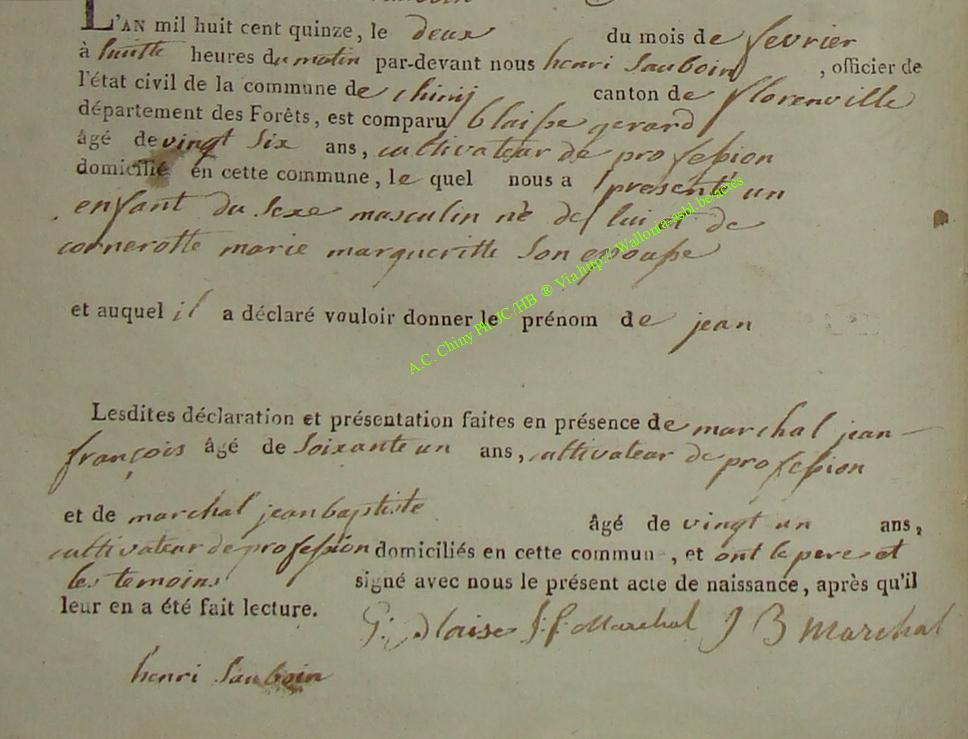 L'AN mil huit cent quinze, le deux du mois de fevrier
à huitte heures du matin par-devant nous henri Sauboin, officier de
l'état civil de la commune de chinij canton de florenville
département des Forêts, est comparu blaise gerard
âgé de vingt six ans, cultivateur de profession
domicilié en cette commune, le quel nous a presenté un
enfant du sexe masculin né de lui et de
cornerotte marie margueritte son epouse
et auquel il a déclaré vouloir donner le prénom de jean
Lesdites déclaration et présentation faites en présence de marchal jean-
françois âgé de soixante un ans, cultivateur de profession
et de marchal jean baptiste âgé de vingt un ans,
cultivateur de profession domiciliés en cette commun, et ont le pere et
les temoins signé avec nous le présent acte de naissance, après qu'il
leur en a été fait lecture.
G: Blaise J: f: Marchal J B Marchal
henri Sauboin
A.C. Chiny Ph JC/HB ® Via http:// Wallonia-asbl.be-actes